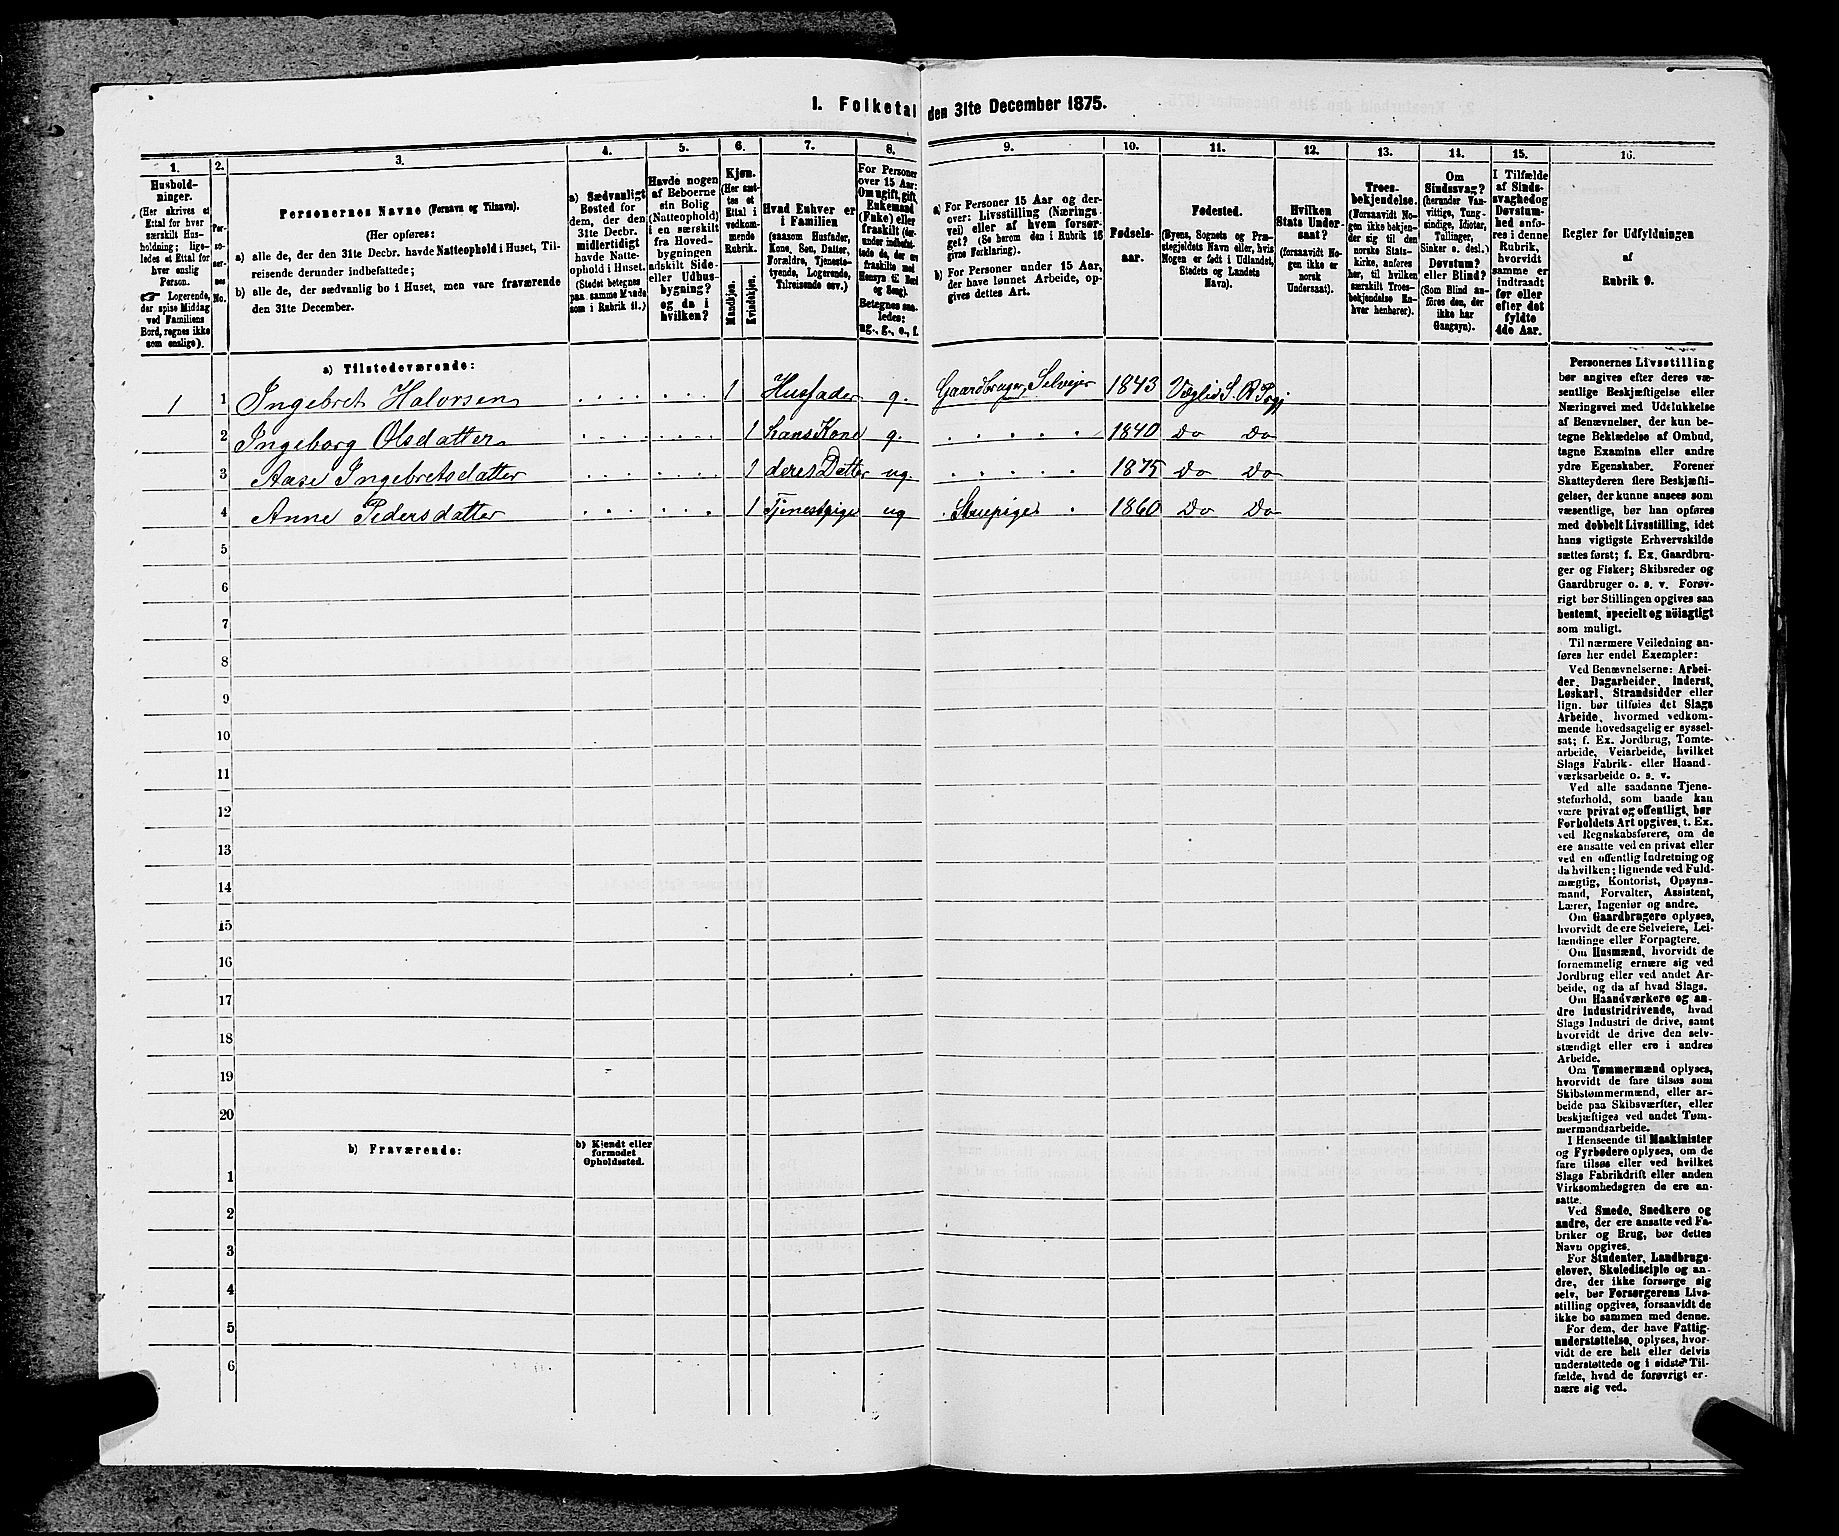 1. Folketal den 31te December 1875.
1. 2. 3. 4. 5. 6. 7. 8. 9. 10. 11. 12. 13. 14. 15. 16.
Hushold-
ninger.
(Her skrives et
Ettal for hver
særskilt Hus-
holdning; lige-
ledes et Ettal for
hver enslig
Person.
☞ Logerende,
der spise Middag
ved Familiens
Bord, regnes ikke
som enslige).
Per-
so-
ner-
nes
No.
Personernes Navne (Fornavn og Tilnavn).
(Her opføres:
a) alle de, der den 31te Decbr. havde Natteophold i Huset, Til-
reisende derunder indbefattede;
b) alle de, der sædvanlig bo i Huset, men vare fraværende
den 31te December.
a) Sædvanligt
Bosted for
dem, der den
31te Decbr.
midlertidigt
havde Natte-
ophold i Huset.
(Stedet betegnes
paa samme Maade
som i Rubrik 11.)
Havde nogen
af Beboerne
sin Bolig
(Natteophold)
i en særskilt
fra Hoved-
bygningen
adskilt Side-
eller Udhus-
bygning?
og da i
hvilken?
Kjøn.
(Her sæt-
tes et
Ettal i
vedkom-
mende
Rubrik.
Mandkjøn.
Kvindekjøn.
Hvad Enhver er
i Familien
(saasom Husfader,
Kone, Søn, Datter,
Forældre, Tjeneste-
tyende, Logerende,
Tilreisende osv.)
For Personer
over 15 Aar:
Om ugift, gift,
Enkemand
(Enke) eller
fraskilt (der-
under indbefat-
tede de, der ere
fraskilte med
Hensyn til Bord
og Seng).
Betegnes saa-
ledes:
ug., g., e., f.
a) For Personer 15 Aar og der-
over: Livsstilling (Nærings-
vei) eller af hvem forsør-
get? (Se herom den i Rubrik 16
givne Forklaring).
b) For Personer under 15 Aar,
der have lønnet Arbeide, op-
gives dettes Art.
Fødsels-
aar.
Fødested.
(Byens, Sognets og Præ-
stegjeldets Navn eller, hvis
Nogen er født i Udlandet,
Stedets og Landets
Navn).
Hvilken
Stats Under-
saat?
(foraavidt No-
gen ikke er
norsk
Undersaat).
Troes-
bekjendelse.
(Forsaavidt No-
gen ikke bekjen-
der sig til den
norske Stats-
kirke, anføres
her, til hvilken
særskilt Troes-
bekjendelse En-
hver henhører).
Om
Sindssvag?
(herunder Van-
vittige, Tung-
sindige, Idioter,
Tullinger,
Sinker o. desl.)
Døvstum?
eller Blind?
(Som Blind an-
føres den, der
ikke har
Gangsyn).
I Tilfælde
af Sinds-
svaghed og
Døvstum-
hed anfø-
res i denne
Rubrik,
hvorvidt
samme er
indtraadt
før eller
efter det
fyldte
4de Aar.
Regler for Udfyldningen
af
Rubrik 9.
a) Tilstedeværende:
1 1 Ingebret Halvorsen 1 Husfader g. Gaardbruger, Selveier 1843
2 Ingeborg Olsdatter 1 hans Kone g. 1840 Do Do
3 Aase Ingebretsdatter 1 deres Datter ug. 1875 Do Do
4 Anne Pedersdatter 1 Tjenestpige ug 1860 Do Do
5
6
7
8
9
10
11
12
13
14
15
16
17
18
19
20
b) Fraværende:
b) Kjendt eller
formodet
Opholdssted.
1
2
3
4
5
6
Personernes Livsstilling
bør angives efter deres væ-
sentlige Beskjæftigelse eller
Næringsvei med Udelukkelse
af Benævnelser, der kun be-
tegne Beklædelse af Ombud,
tagne Examina eller andre
ydre Egenskaber. Forener
Skatteyderen flere Beskjæfti-
gelser, der kunne ansees som
væsentlige, bør han opføres
med dobbelt Livsstilling, idet
hans vigtigste Erhvervskilde
sættes først; f. Ex. Gaardbru-
ger og Fisker; Skibsreder og
Gaardbruger o. s. v. Forøv-
rigt bør Stillingen opgives saa
bestemt, specielt og nöiagtigt
som muligt.
Til nærmere Veiledning an-
føres her endel Exempler:
Ved Benævnelserne: Arbei-
der, Dagarbeider, Inderst,
Løskarl, Strandsidder eller
lign. bør tilføies det Slags
Arbeide, hvormed vedkom-
mende hovedsagelig er syssel-
sat; f. Ex. Jordbrug, Tomte-
arbeide, Veiarbeide, hvilket
Slags Fabrik- eller Haand-
værksarbeide o. s. v.
Ved alle saadanne Tjene-
steforhold, som baade kan
være privat og offentligt, bør
Forholdets Art opgives, t. Ex.
ved Regnskabsførere, om de
ere ansatte ved en privat eller
ved en offentlig Indretning og
da hvilken; lignende ved Fuld-
mægtig, Kontorist, Opsyns-
mand, Forvalter, Assistent,
Lærer, Ingeniør og andre.
Om Gaardbrugere oplyses,
hvorvidt de ere Selveiere, Lei-
lændinge eller Forpagtere.
Om Husmænd, hvorvidt de
fornemmelig ernære sig ved
Jordbrug eller ved andet Ar-
beide, og da af hvad Slags.
Om Haandværkere og an-
dre Industridrivende, hvad
Slags Industri de drive, samt
hvorvidt de drive den selv-
stændigt eller ere i andres
Arbeide.
Om Tømmermænd oplyses,
hvorvidt de fare tilsøs som
Skibstømmermænd, eller ar-
beide paa Skibsværfter, eller
beskjæftiges ved andet Tøm-
mermandsarbeide.
I Henseende til Maskinister
og Fyrbødere oplyses, om de
fare tilsøs eller ved hvilket
Slags Fabrikdrift eller anden
Virksomhedsgren de ere an-
satte.
Ved Smede, Snedkere og
andre, der ere ansatte ved Fa-
briker og Brug, bør dettes
Navn opgives.
For Studenter, Landbrugs-
elever, Skoledisciple og an-
dre, der ikke forsørge sig
selv, bør Forsørgerens Livs-
stilling opgives, forsaavidt de
ikke bo sammen med denne.
For dem, der have Fattig-
understøttelse, oplyses, hvor-
vidt de ere helt eller delvis
understøttede og i sidste Til-
fælde, hvad de forøvrigt er-
nære sig ved.